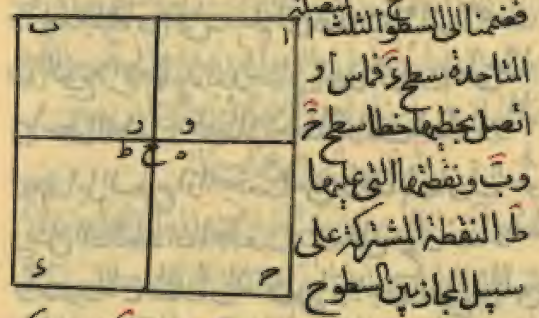 فضممنا الى السطوح الثلث ا
المتاحدة سطح ءَ فماس او
اتصل بخطيها خطا سطح حَ
وبَ ونقطتها التى عليها
طَ النقطة المشتركة على
سبيل المجاز بين السطوح
ب ا
ر و
ط ح ه
ء ح